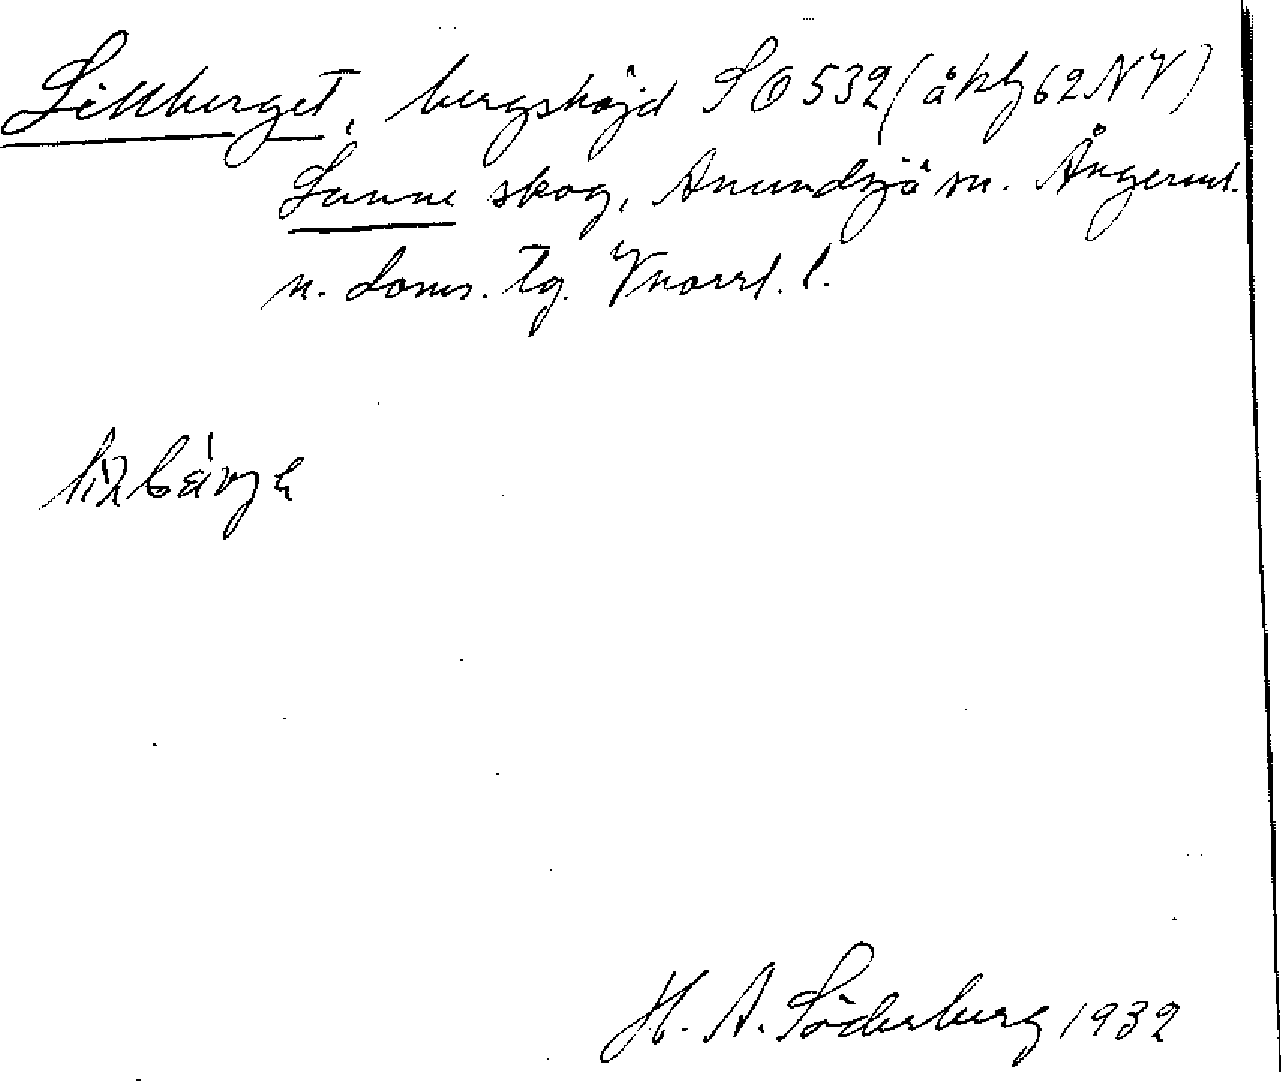 Lillberget, bergshöjd SO 532 (åkbl 62 NV)
Sunne skog, Anundsjö sn. Ångerml.
n. doms. tg. Vnorrl. l.
H. A. Söderberg 1932